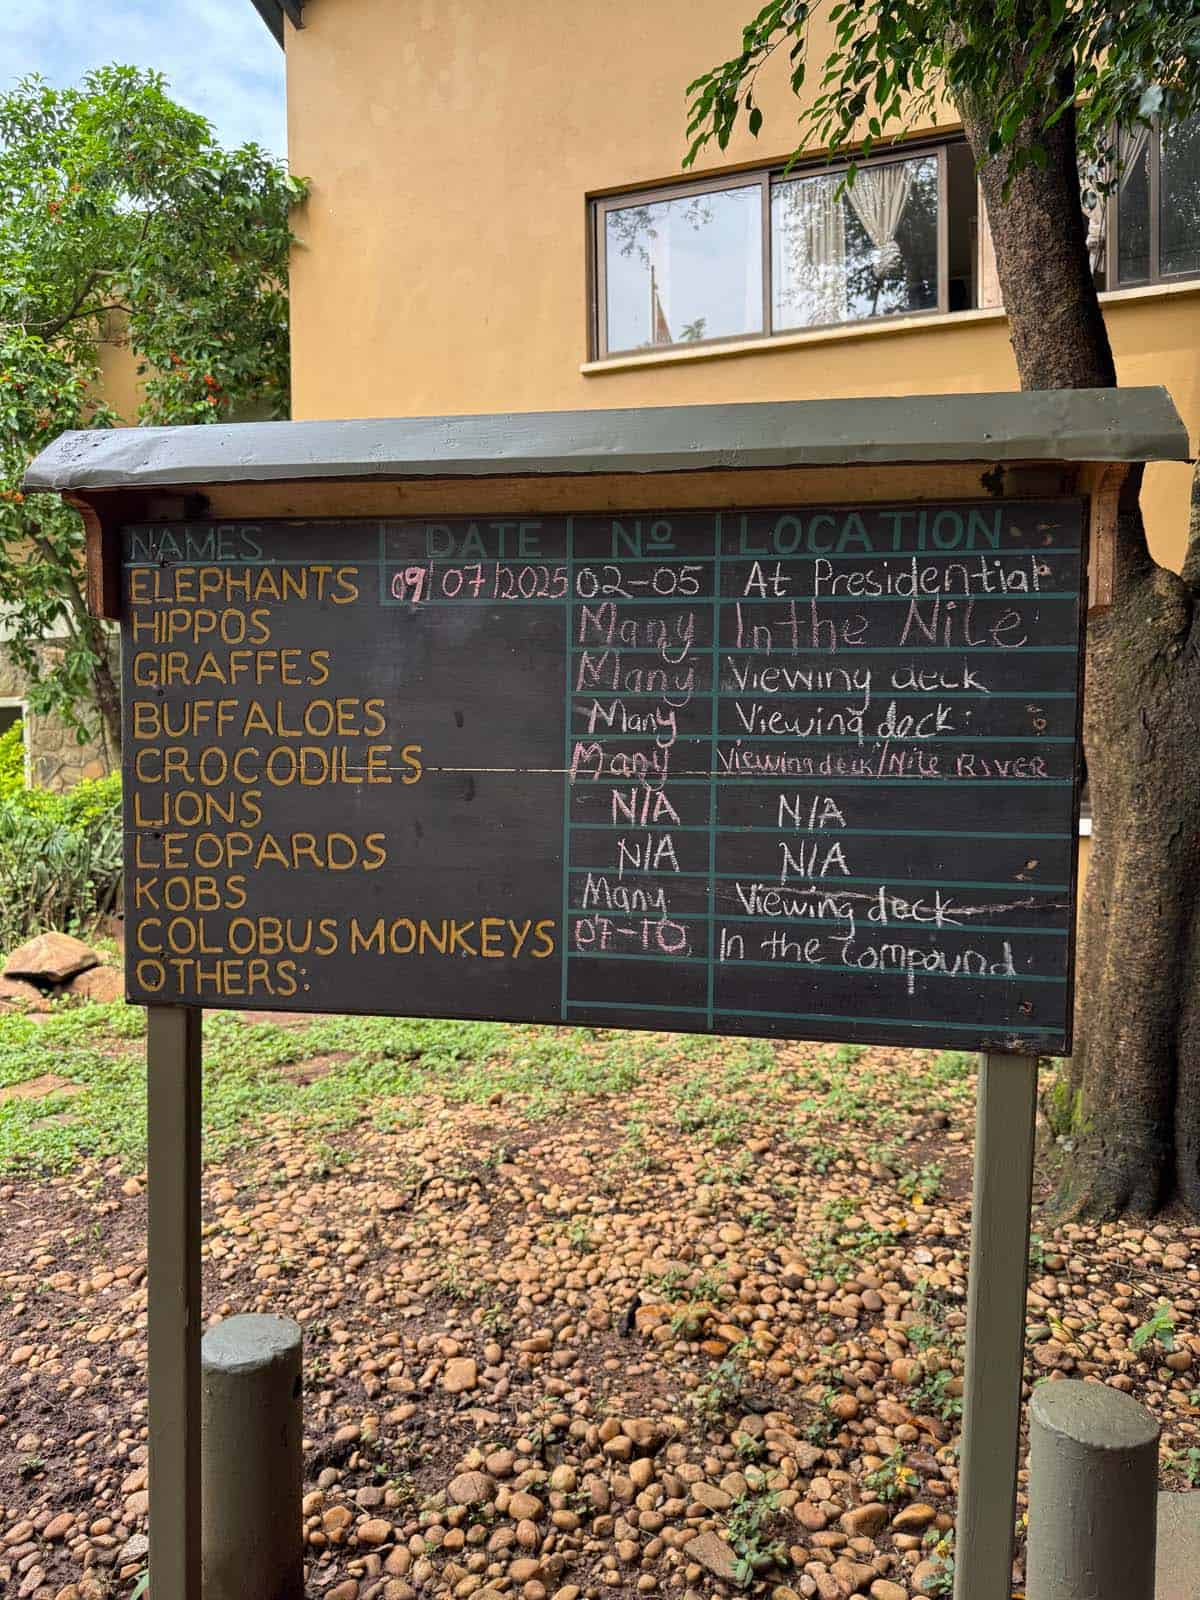 NAMES. DATE Nº LOCATION
ELEPHANTS 09/07/2025 02-05 At Presidential
HIPPOS Many In the Nile
GIRAFFES Many Viewing deck
BUFFALOES Many Viewing deck
CROCODILES Many Viewing deck/Nile RIVER
LIONS N/A N/A
LEOPARDS N/A N/A
KOBS Many Viewing deck
COLOBUS MONKEYS 07-10 In the Compound
OTHERS: